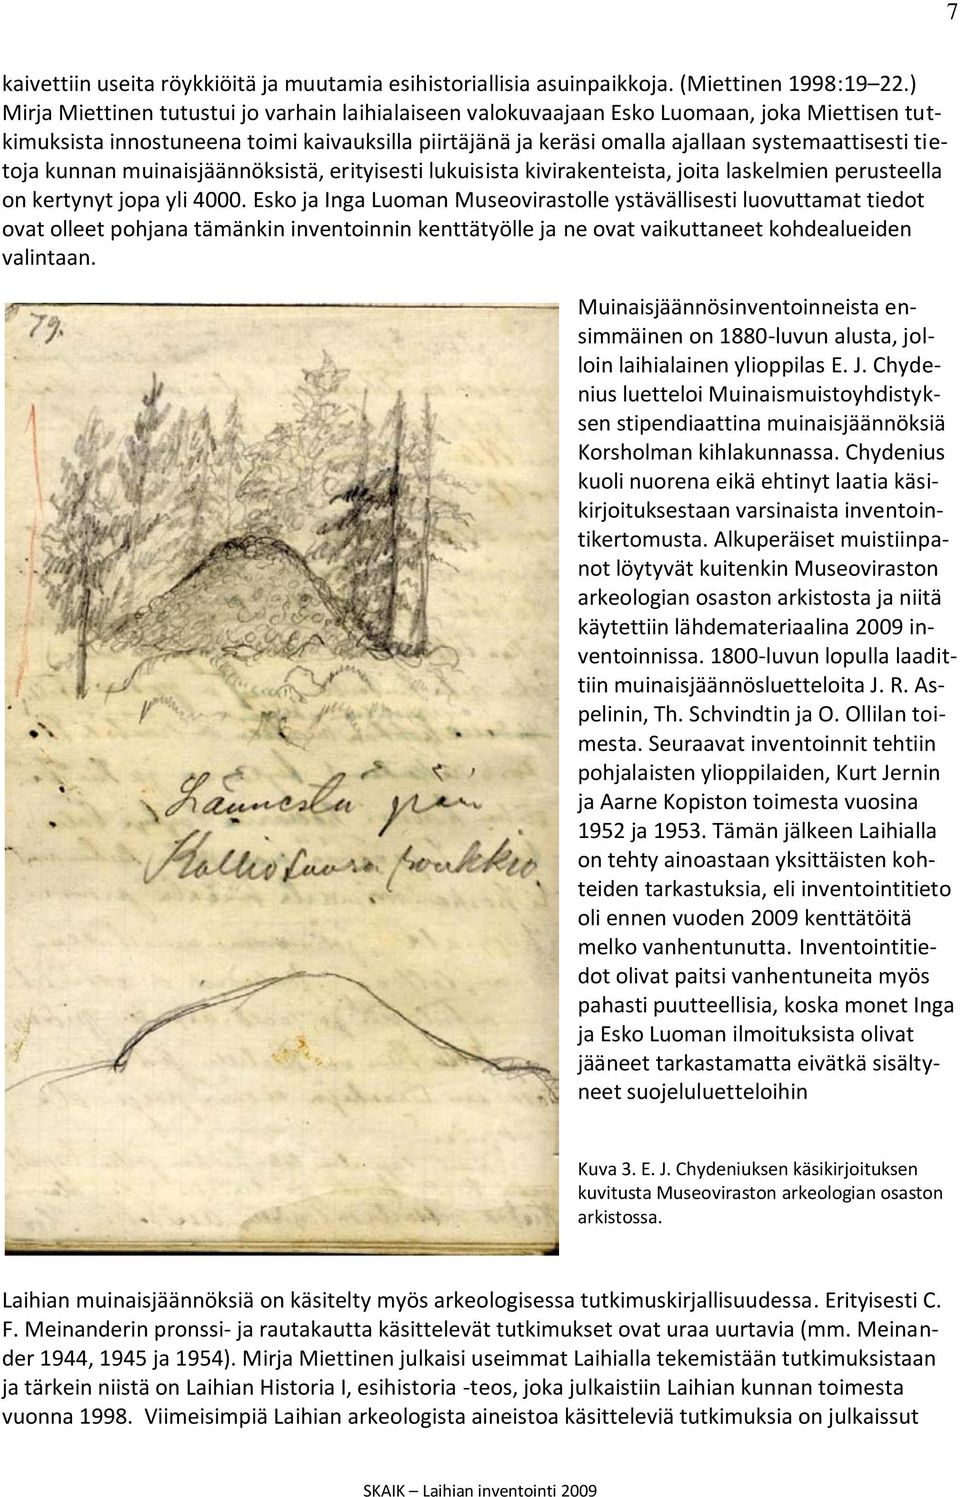 7
kaivettiin useita röykkiöitä ja muutamia esihistoriallisia asuinpaikkoja. (Miettinen 1998:19–22.)
Mirja Miettinen tutustui jo varhain laihialaiseen valokuvaajaan Esko Luomaan, joka Miettisen tut-
kimuksista innostuneena toimi kaivauksilla piirtäjänä ja keräsi omalla ajallaan systemaattisesti tie-
toja kunnan muinaisjäännöksistä, erityisesti lukuisista kivirakenteista, joita laskelmien perusteella
on kertynyt jopa yli 4000. Esko ja Inga Luoman Museovirastolle ystävällisesti luovuttamat tiedot
ovat olleet pohjana tämänkin inventoinnin kenttätyölle ja ne ovat vaikuttaneet kohdealueiden
valintaan.
79.
Lännestä päin
Kalliosaaren roukkio
Muinaisjäännösinventoinneista en-
simmäinen on 1880-luvun alusta, jol-
loin laihialainen ylioppilas E. J. Chyde-
nius luetteloi Muinaismuistoyhdistyk-
sen stipendiaattina muinaisjäännöksiä
Korsholman kihlakunnassa. Chydenius
kuoli nuorena eikä ehtinyt laatia käsi-
kirjoituksestaan varsinaista inventoin-
tikertomusta. Alkuperäiset muistiinpa-
not löytyvät kuitenkin Museoviraston
arkeologian osaston arkistosta ja niitä
käytettiin lähdemateriaalina 2009 in-
ventoinnissa. 1800-luvun lopulla laadit-
tiin muinaisjäännösluetteloita J. R. As-
pelinin, Th. Schvindtin ja O. Ollilan toi-
mesta. Seuraavat inventoinnit tehtiin
pohjalaisten ylioppilaiden, Kurt Jernin
ja Aarne Kopiston toimesta vuosina
1952 ja 1953. Tämän jälkeen Laihialla
on tehty ainoastaan yksittäisten koh-
teiden tarkastuksia, eli inventointitieto
oli ennen vuoden 2009 kenttätöitä
melko vanhentunutta. Inventointitie-
dot olivat paitsi vanhentuneita myös
pahasti puutteellisia, koska monet Inga
ja Esko Luoman ilmoituksista olivat
jääneet tarkastamatta eivätkä sisälty-
neet suojeluluetteloihin
Kuva 3. E. J. Chydeniuksen käsikirjoituksen
kuvitusta Museoviraston arkeologian osaston
arkistossa.
Laihian muinaisjäännöksiä on käsitelty myös arkeologisessa tutkimuskirjallisuudessa. Erityisesti C.
F. Meinanderin pronssi- ja rautakautta käsittelevät tutkimukset ovat uraa uurtavia (mm. Meinan-
der 1944, 1945 ja 1954). Mirja Miettinen julkaisi useimmat Laihialla tekemistään tutkimuksistaan
ja tärkein niistä on Laihian Historia I, esihistoria -teos, joka julkaistiin Laihian kunnan toimesta
vuonna 1998. Viimeisimpiä Laihian arkeologista aineistoa käsitteleviä tutkimuksia on julkaissut
SKAIK – Laihian inventointi 2009